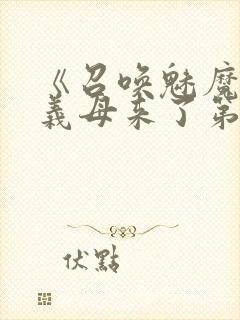 《召唤魅魔
義母来了第
伏點